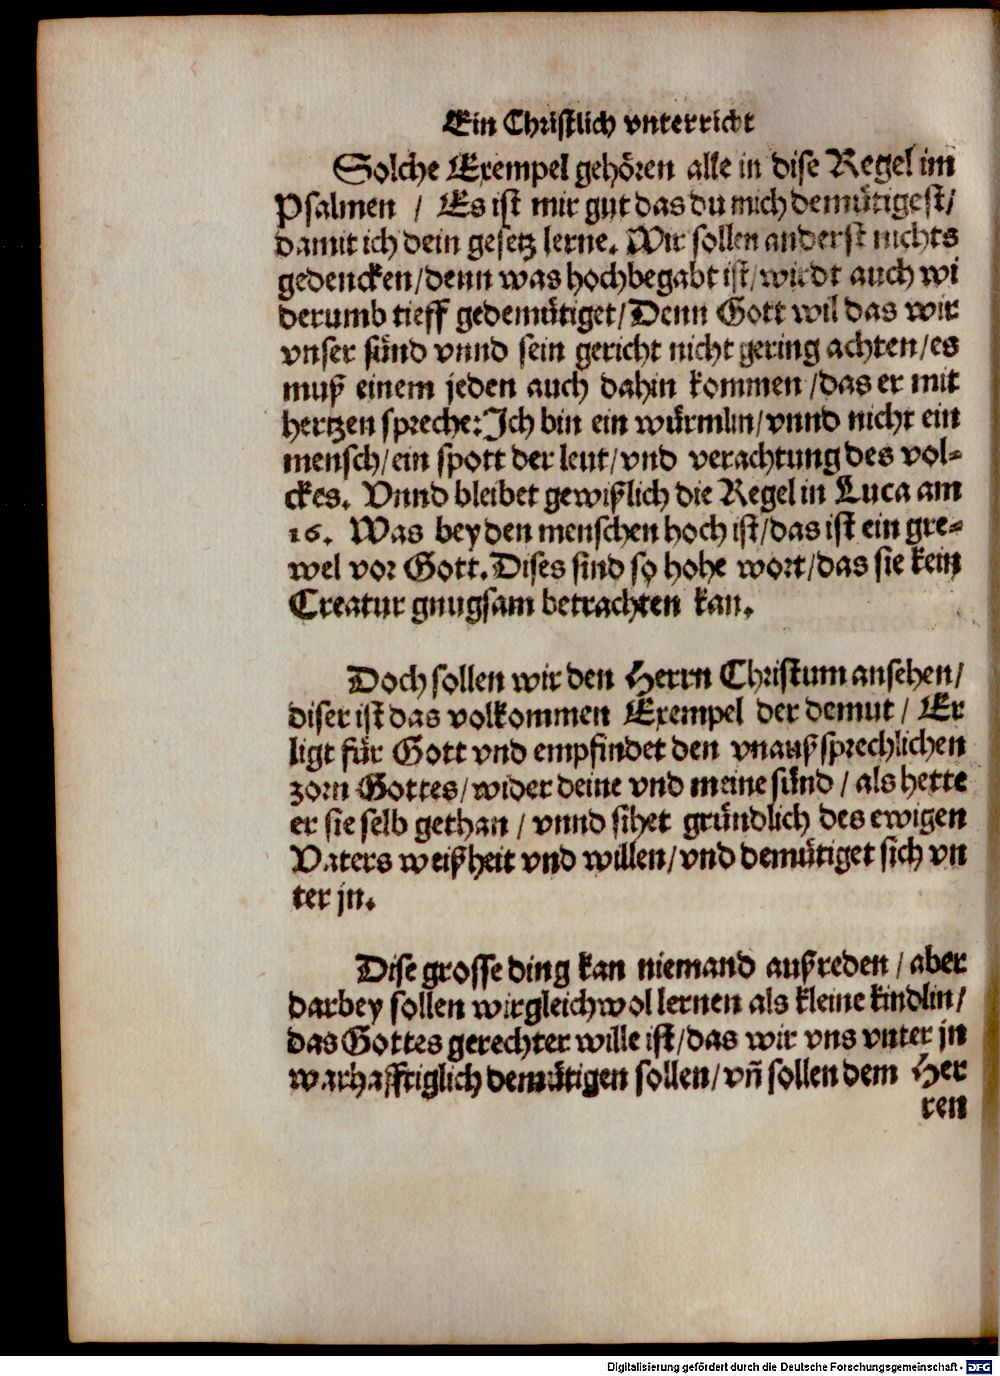 Ein Christlich vnterricht
Solche Exempel gehören alle in dise Regel im
Psalmen / Es ist mir gut das du mich demütigest/
damit ich dein gesetz lerne. Wir sollen anderst nichts
gedencken/denn was hochbegabt ist/wirdt auch wi
derumb tieff gedemütiget/Denn Gott wil das wir
vnser sünd vnnd sein gericht nicht gering achten/es
muß einem jeden auch dahin kommen /das er mit
hertzen spreche: Ich bin ein würmlin/vnnd nicht ein
mensch/ein spott der leut/vnd verachtung des vol⸗
ckes. Vnnd bleibet gewißlich die Regel in Luca am
16. Was bey den menschen hoch ist/das ist ein gre⸗
wel vor Gott. Dises sind so hohe wort/das sie kein
Creatur gnugsam betrachten kan.
Doch sollen wir den Herrn Christum ansehen/
diser ist das volkommen Exempel der demut / Er
ligt für Gott vnd empfindet den vnaußsprechlichen
zorn Gottes/wider deine vnd meine sünd / als hette
er sie selb gethan / vnnd sihet gründlich des ewigen
Vaters weißheit vnd willen/vnd demütiget sich vn
ter jn.
Dise grosse ding kan niemand außreden / aber
darbey sollen wir gleichwol lernen als kleine kindlin/
das Gottes gerechter wille ist/das wir vns vnter jn
warhafftiglich demütigen sollen/vñ sollen dem Her
ren
Digitalisierung gefördert durch die Deutsche Forschungsgemeinschaft - DFG